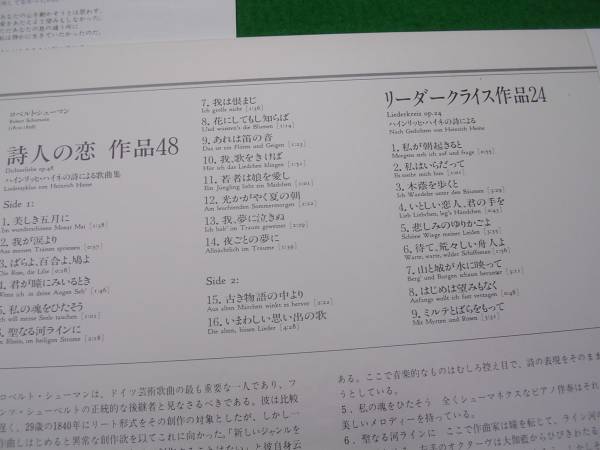 あなたの心を動かそうとは思わず、
ロベルト・シューマン
Robert Schumann
詩人の恋 作品48
Dichterliebe op.48
ハインリッヒ・ハイネの詩による歌曲集
Liederzyklus von Heinrich Heine
Side 1:
1. 美しき五月に
Im wunderschönen Monat Mai
2. 我が涙より
Aus meinen Tränen spriessen
3. ばらよ、百合よ、鳩よ
Die Rose, die Lilie
4. 君が瞳にみいるとき
Wenn ich in deine Augen Seh'
5. 私の魂をひたそう
Ich will meine Seele tauchen
6. 聖なる河ラインに
Im Rhein, im heiligen Strome
7. 我は恨まじ
Ich grolle nicht
8. 花にしてもし知らば
Und wüssten's die Blumen
9. あれは笛の音
Das ist ein Flöten und Geigen
10. 我、歌をきけば
Hör ich das Liedchen klingen
11. 若者は娘を愛し
Ein Jüngling liebt ein Mädchen
12. 光かがやく夏の朝
Am leuchtenden Sommermorgen
13. 我、夢に泣きぬ
Ich hab' im Traum geweinet
14. 夜ごとの夢に
Allnächtlich im Traume
Side 2:
15. 古き物語の中より
Aus alten Märchen winkt es hervor
16. いまわしい思い出の歌
Die alten, bösen Lieder
リーダークライス作品24
Liederkreis op.24
ハインリッヒ・ハイネの詩による
Nach Gedichten von Heinrich Heine
1. 私が朝起きると
Morgens steh ich auf und frage
2. 私はいらだって
Es treibt mich hin
3. 木蔭を歩くと
Ich Wandelte unter den Bäumen
4. いとしい恋人、君の手を
Lieb Liebchen, leg's Händchen
5. 悲しみのゆりかごよ
Schöne Wiege meiner Leiden
6. 待て、荒々しい舟人よ
Warte, warte, wilder Schiffsmann
7. 山と城が水に映って
Berg' und Burgen schaun herunter
8. はじめは望みもなく
Anfangs wollt ich fast verzagen
9. ミルテとばらをもって
Mit Myrten und Rosen
ロベルト・シューマンは、ドイツ芸術歌曲の最も重要な一人であり、フ
ランツ・シューベルトの正統的な後継者と見なさるべきである。彼は比較
的遅く、29歳の1840年にリート形式をその創作の対象としたが、しかし一
度作曲しはじめると異常な創作欲を以てこれに向かった。「新しいジャンルを
ある。ここで音楽的なものはむしろ控え目で、詩の表現をそのまま
うとしている。
5．私の魂をひたそう 全くシューマネクスなピアノ伴奏はそれ
美しいメロディーを持っている。
6．聖なる河ラインに ここで作曲家は瞳を転じて、ライン河の